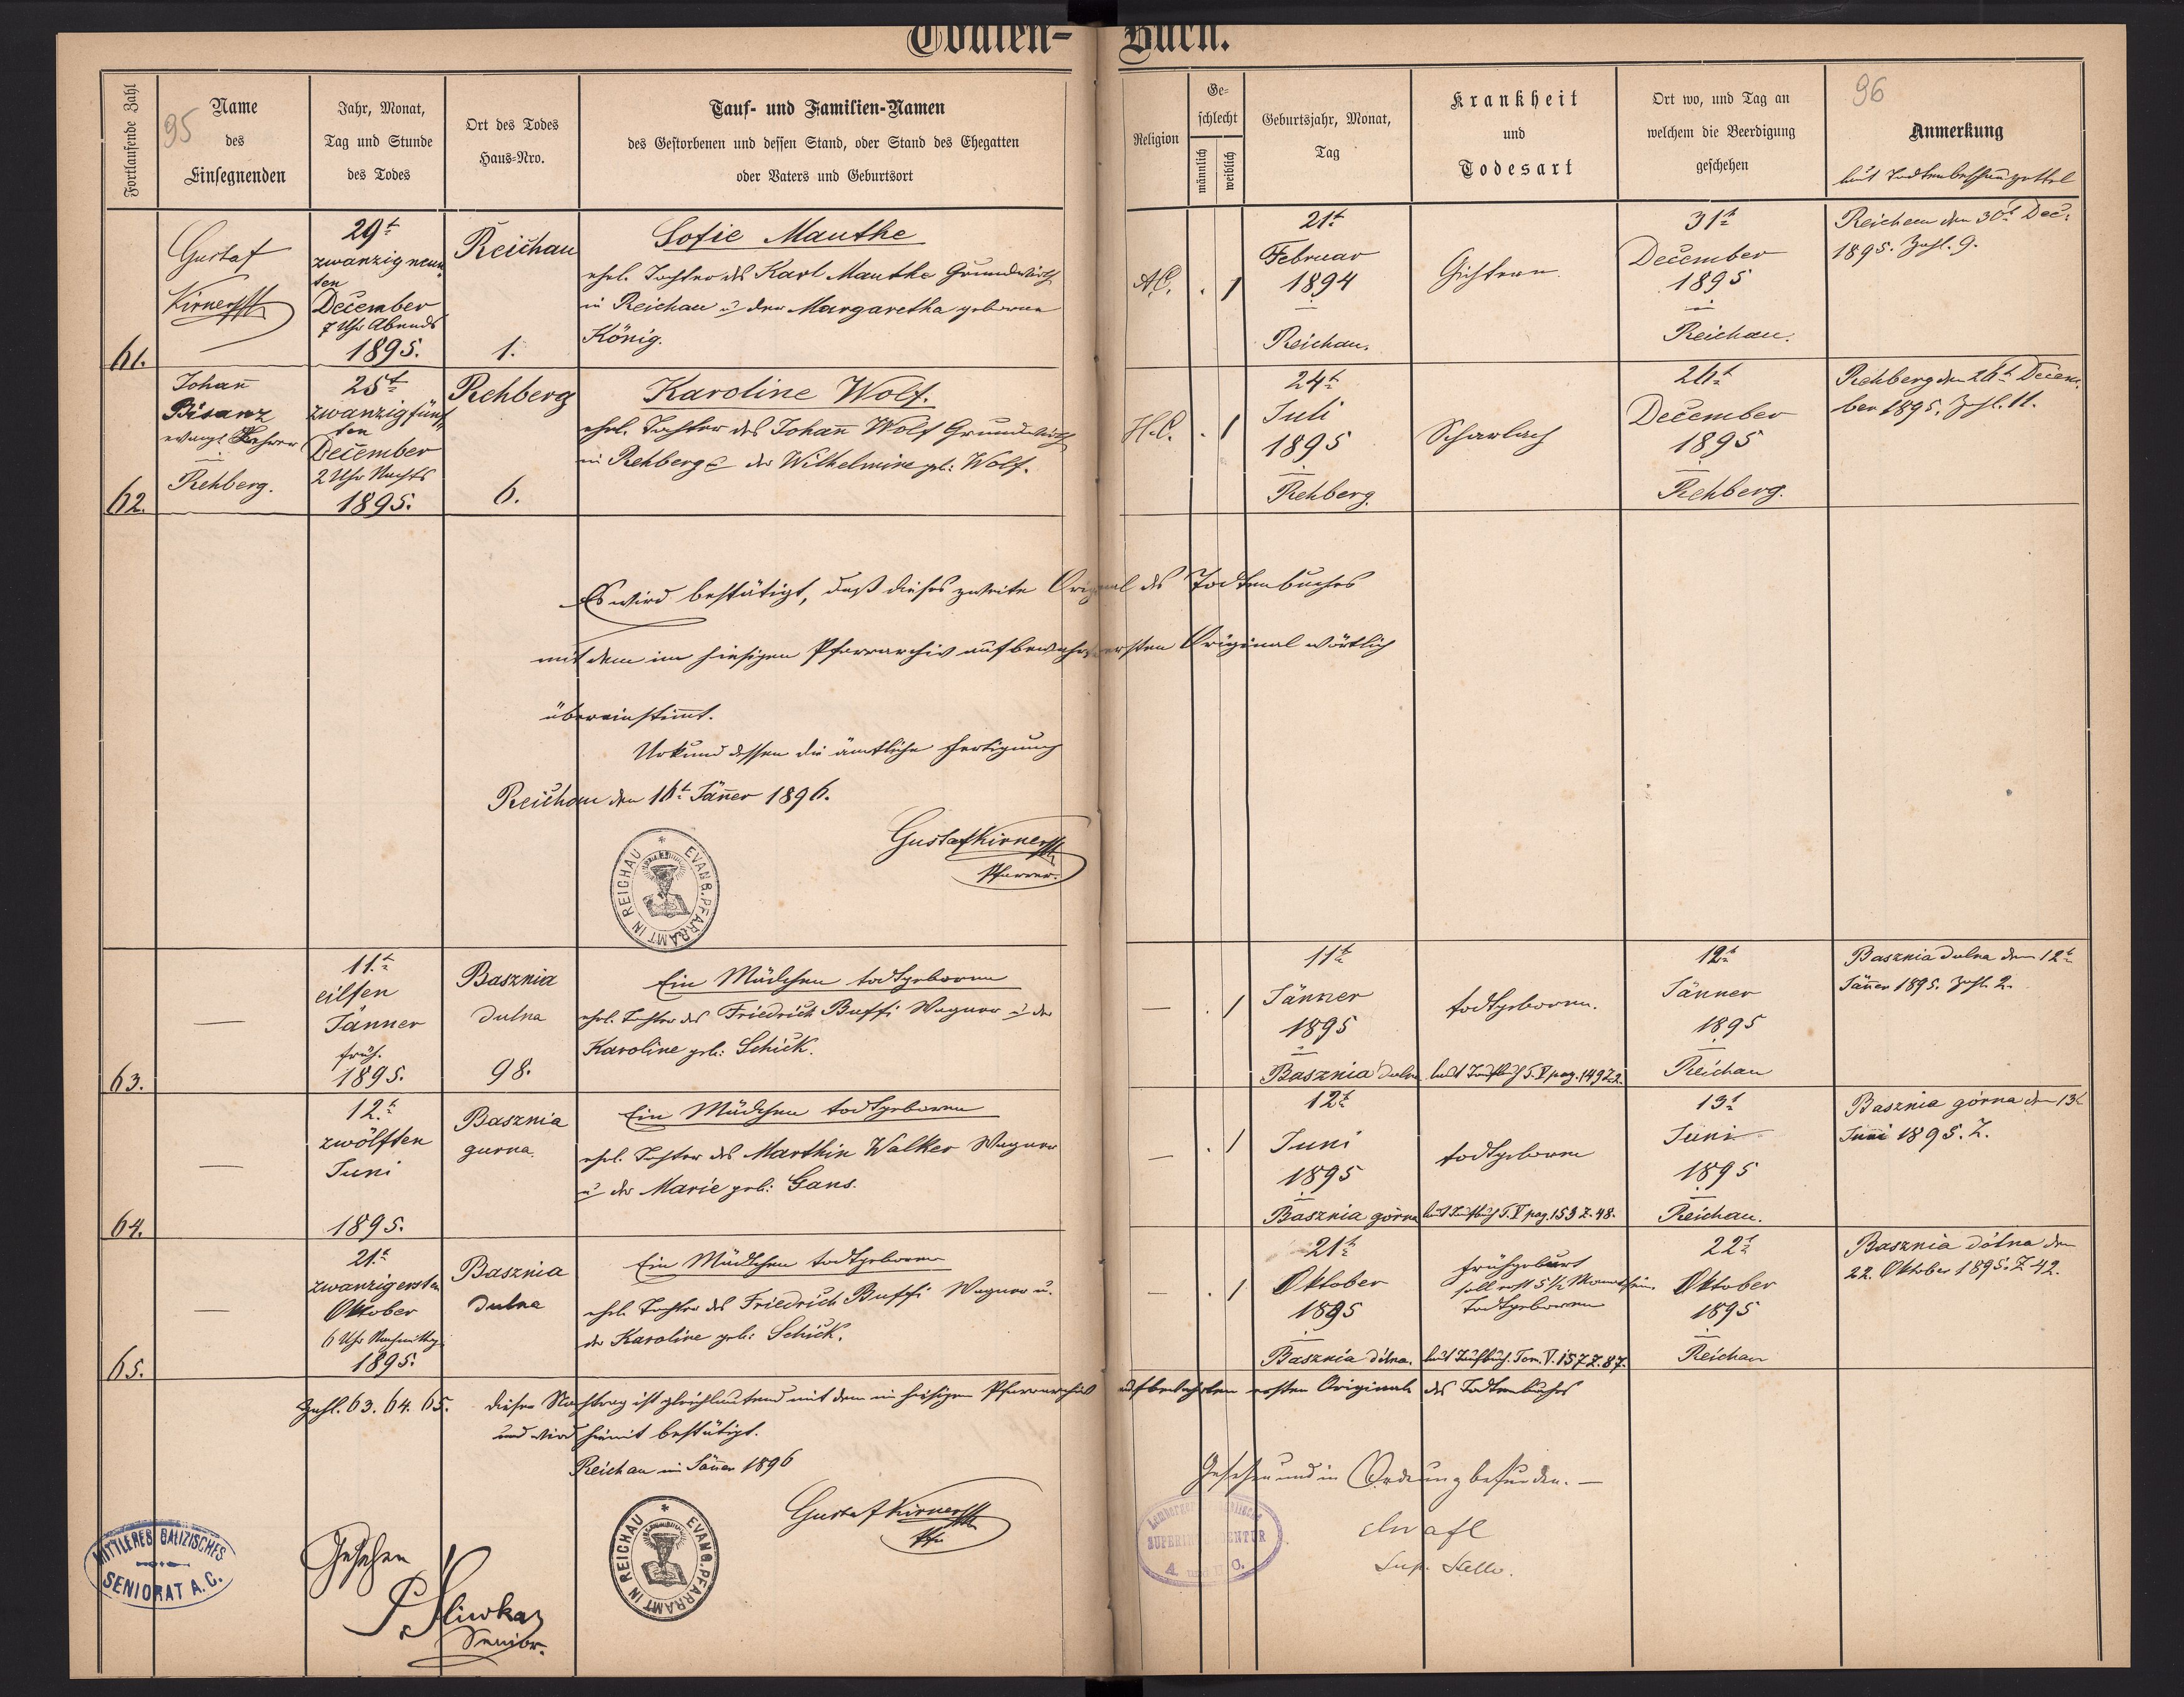 Todten-Buch.
Fortlaufende Zahl
95
Name
des
Einsegnenden
Jahr, Monat,
Tag und Stunde
des Todes
Ort des Todes
Haus-Nro.
Tauf- und Familien-Namen
des Gestorbenen und dessen Stand, oder Stand des Ehegatten
oder Vaters und Geburtsort
Religion
Ge-
schlecht
männlich
weiblich
Geburtsjahr, Monat,
Tag
Krankheit
und
Todesart
Ort wo, und Tag an
welchem die Beerdigung
geschehen
96
Anmerkung
laut Todtenbeschauzettel
61.
Gustaf
Kirner
29t
zwanzig neun
ten
December
7 Uhr Abends
1895.
Reichau
1.
Sofie Mauthe
ehel. Tochter des Karl Mauthe Grundwirth
in Reichau u der Margaretha geborene
König.
A.C.
. 1
21t
Februar
1894
Reichau.
31t
December
1895
Reichau.
Reichau den 30t Dec.
1895. Zahl. 9.
62.
Johan̄
Bisanz
evangl. Lehrer
Rehberg.
25t
zwanzig fünf
ten
December
2 Uhr Nachts
1895.
Rehberg
6.
Karoline Wolf.
ehel. Tochter des Johan̄ Wolf Grundwirth
in Rehberg u der Wilhelmine geb: Wolf.
H.C.
. 1
24t
Juli
1895
Rehberg
Scharlach
26t
December
1895
Rehberg.
Rehberg den 26t Decem
ber 1895. Zhl. 11.
Es wird bestätigt, daß dieses zweite Original des Todtenbuches
mit dem im hiesigen Pfarrarchiv aufbewahrten ersten Original wörtlich
übereinstim̄t.
Urkund dessen die ämtliche Fertigung
Reichau den 16t Jän̄er 1896.
Gustaf Kirner
Pfarrer.
EVANG. PFARRAMT IN REICHAU
63.
—
11.t
eilften
Jänner
früh.
1895.
Basznia
dulna
98.
Ein Mädchen todtgeboren
ehel. Tochter des Friedrich Buffi Wagner u der
Karoline geb: Schick.
—
. 1
11t
Jänner
1895
Basznia dulna
todtgeboren.
laut Taufbuch T. V pag. 149 Z. 2.
12t
Jänner
1895
Reichau
Basznia dulna den 12t
Jän̄er 1895. Zahl. 2.
64.
—
12.t
zwölften
Juni
1895.
Basznia
gurna.
Ein Mädchen todtgeboren
ehel. Tochter des Marthin Walker Wagner
u der Marie geb: Gans.
—
. 1
12t
Juni
1895
Basznia górna
todtgeboren
laut Taufbuch T. V pag. 153 Z. 48.
13t
Juni
1895
Reichau.
Basznia górna den 13t
Juni 1895. Z.
65.
—
21t
zwanzigersten
Oktober
6 Uhr Nachmittag
1895.
Basznia
dulna
Ein Mädchen todtgeboren
ehel. Tochter des Friedrich Buffi Wagner u.
der Karoline geb: Schick.
—
. 1
21t
Oktober
1895
Basznia dólna.
frühgeburt
soll erst 5½ Monath sein
Todtgeboren
laut Taufbuch. Tom. V. 157 Z. 87.
22t
Oktober
1895
Reichau
Basznia dólna den
22. Oktober 1895. Z 42.
Zahl. 63. 64. 65. Dieser Nachtrag ist gleichlautend mit dem im hiesigen Pfarrarchiv aufbewahrten ersten Originale des Todtenbuches
und wird hiemit bestätigt.
Reichau im Jän̄er 1896
Gustaf Kirner
Pfr
EVANG. PFARRAMT IN REICHAU
MITTLERES GALIZISCHES
SENIORAT A. C.
Gesehen
Senior.
Gesehen und in Ordnung befunden. —
Lemberger
SUPERINTENDENTUR
A. und H. C.
Sup. Stello.